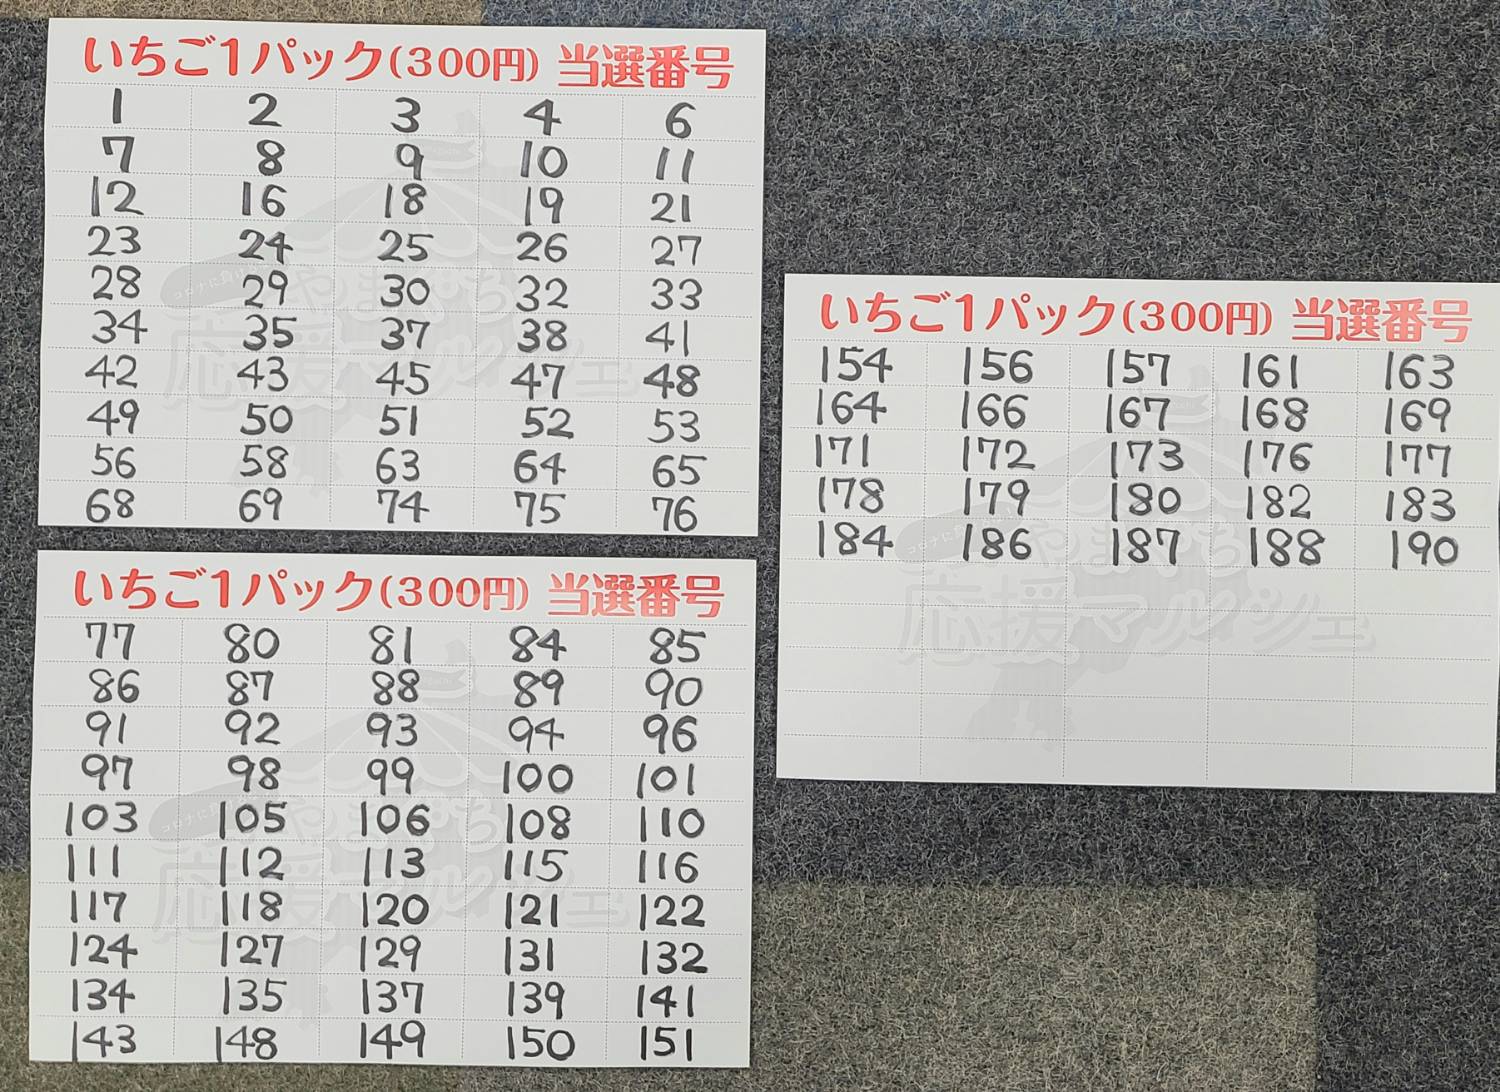 いちご1パック(300円) 当選番号
1 2 3 4 6
7 8 9 10 11
12 16 18 19 21
23 24 25 26 27
28 29 30 32 33
34 35 37 38 41
42 43 45 47 48
49 50 51 52 53
56 58 63 64 65
68 69 74 75 76
いちご1パック(300円) 当選番号
77 80 81 84 85
86 87 88 89 90
91 92 93 94 96
97 98 99 100 101
103 105 106 108 110
111 112 113 115 116
117 118 120 121 122
124 127 129 131 132
134 135 137 139 141
143 148 149 150 151
いちご1パック(300円) 当選番号
154 156 157 161 163
164 166 167 168 169
171 172 173 176 177
178 179 180 182 183
184 186 187 188 190
応援マルシェ